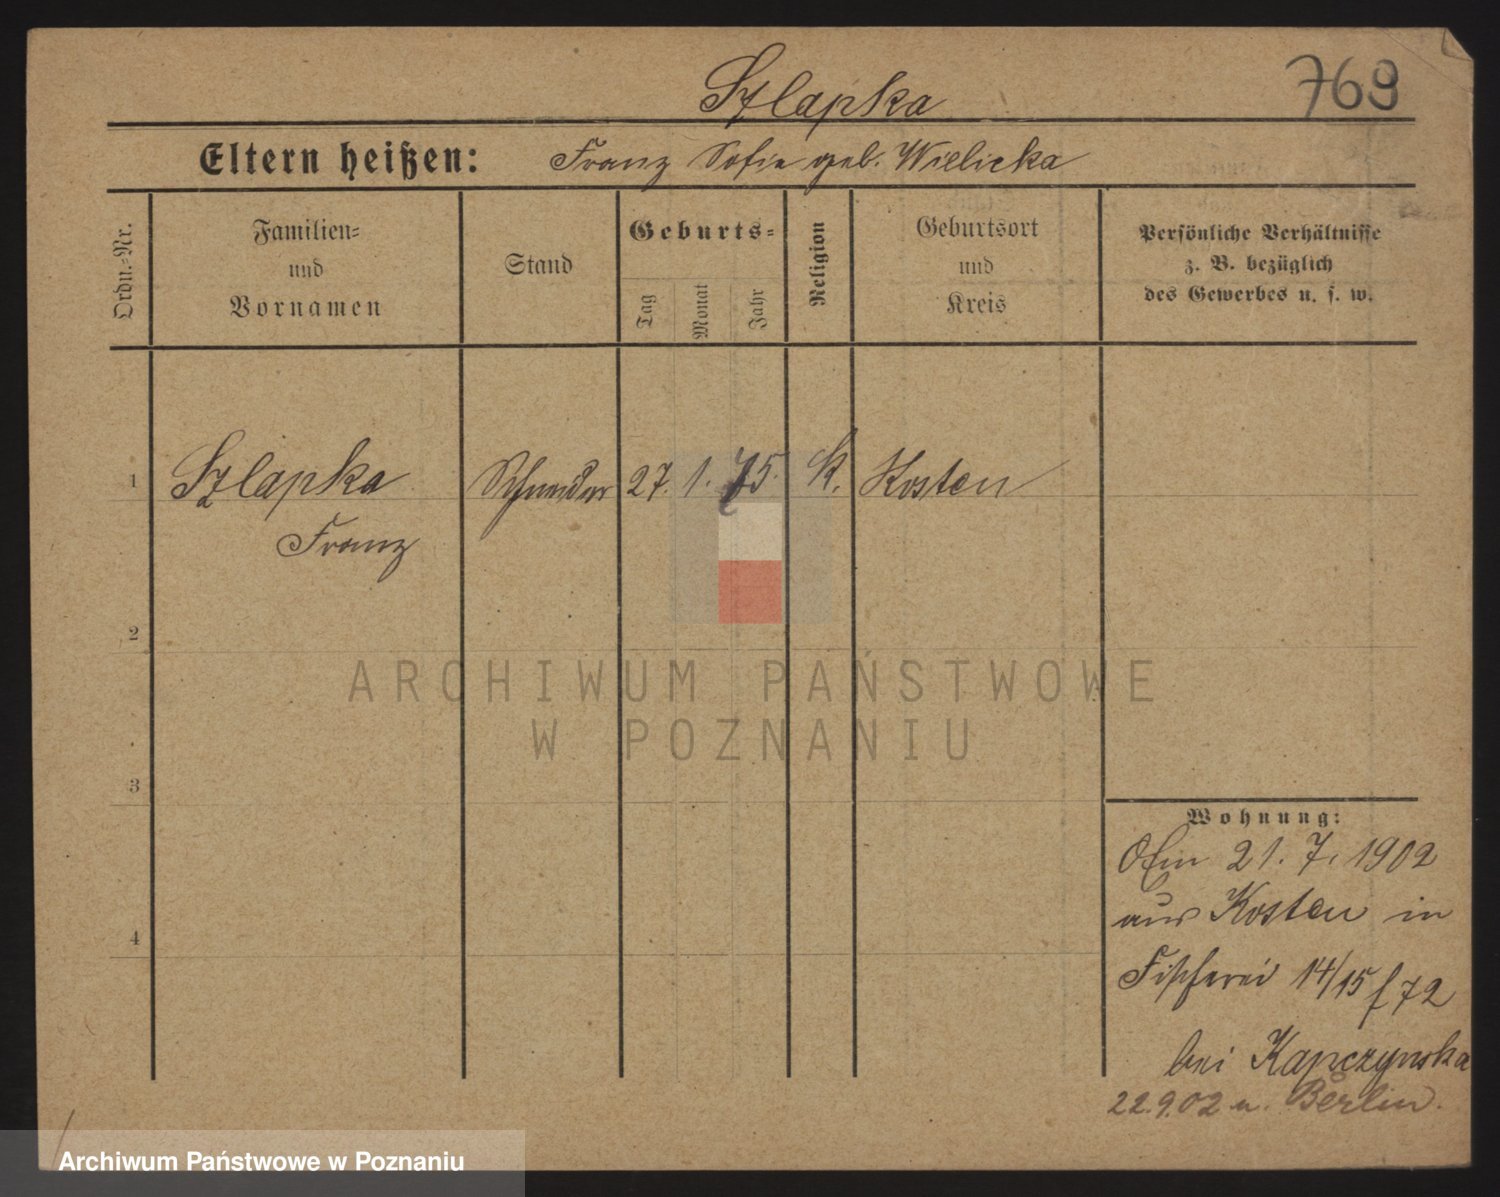 769
Szlapka
Eltern heißen: Franz Sofie geb. Wielicka
Ordn.-Nr.
Familien-
und
Vornamen
Stand
Geburts-
Tag
Monat
Jahr
Religion
Geburtsort
und
Kreis
Persönliche Verhältnisse
z. B. bezüglich
des Gewerbes u. s. w.
1 Szlapka Schneider 27. 1. 75. k. Kosten
Franz
2
3
4
ARCHIWUM PAŃSTWOWE
W POZNANIU
Wohnung:
21. 7. 1902
aus Kosten in
Fischerei 14/15 f 72
bei Kapczynska
22.9.02 n. Berlin.
Archiwum Państwowe w Poznaniu